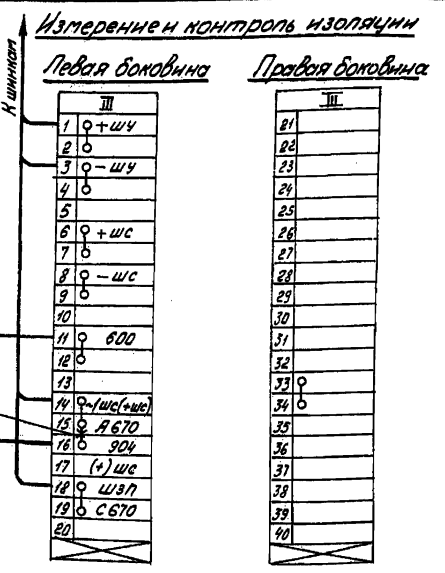 Измерение и контроль изоляции
К шинкам
Левая боковина
III
1 +ШУ
2
3 -ШУ
4
5
6 +ШС
7
8 -ШС
9
10
11 600
12
13
14 ~1ШС(+ШС)
15 А670
16 904
17 (+)ШС
18 ШЗП
19 С670
20
Правая боковина
III
21
22
23
24
25
26
27
28
29
30
31
32
33
34
35
36
37
38
39
40